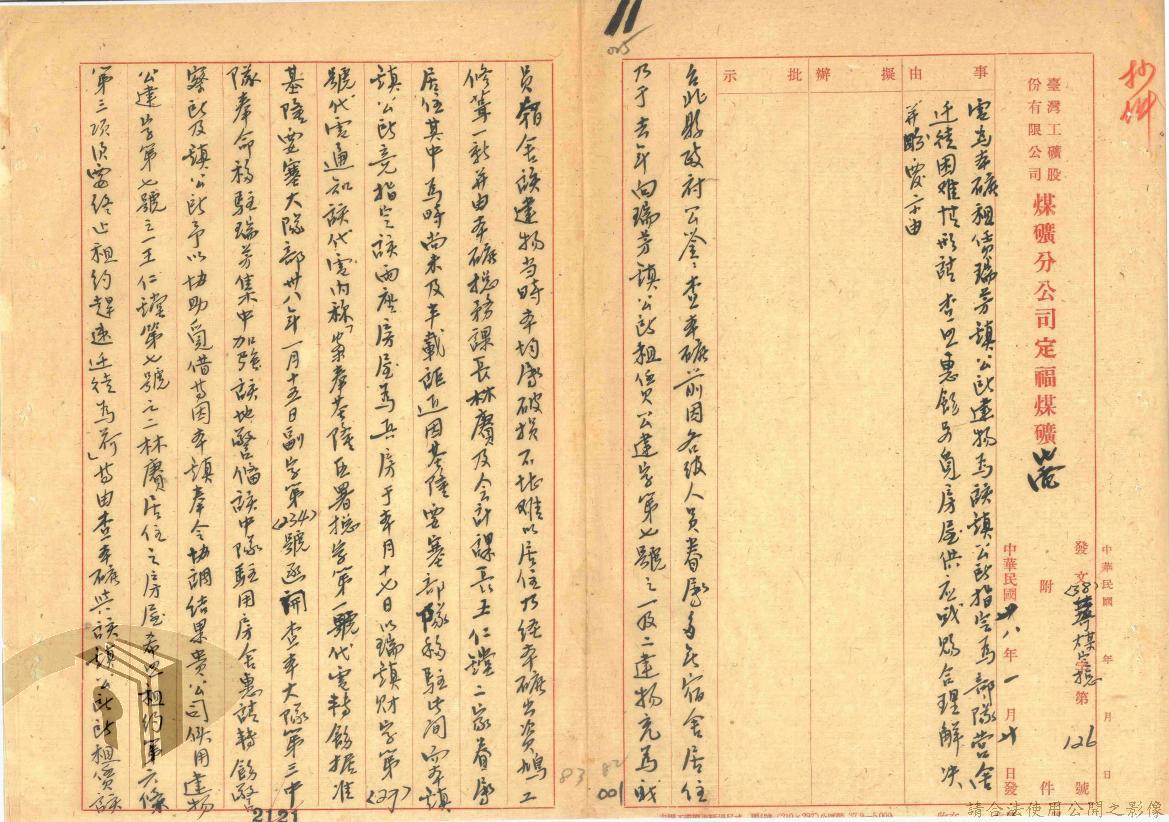 抄件
臺灣工礦股份有限公司 煤礦分公司定福煤礦
中華民國 年 月 日
發文(38) 煤定總字第126號
附 件
中華民國卅八年一月廿日發
事由
電為本礦租賃瑞芳鎮公所建物為該鎮公所指定為部隊營舍
迁徙困难情形請 查照惠飭另覓房屋供应或賜合理解决
并盼電示由
擬辦
批示
台北縣政府公鉴：查本礦前因各級人員眷屬多无宿舍居住
乃于去年向瑞芳鎮公所租賃公建字第七號之一及二建物充為職
員宿舍該建物当時本均屬破損不堪难以居住乃经本礦出資鳩工
修葺一新并由本礦总務課長林賡及会計課長王仁鏜二家眷屬
居住其中為時尚未及半載詎近因基隆要塞部隊移駐此间而本鎮
鎮公所竟指定該兩座房屋為兵房于本月十七日以瑞鎮财字第(27)
號代電通知該代電内称「案奉基隆区署总字第一號代電轉飭据准
基隆要塞大隊部卅八年一月十五日副字第(234)號函開查本大隊第三中
隊奉命移駐瑞芳集中加強該地警備該中隊駐用房舍惠請轉飭警
察所及鎮公所予以协助覓借等因本鎮奉令协調結果貴公司借用建物
公建字第七號之一王仁鏜第七號之二林賡居住之房屋希照租約第六條
第三項須要終止租約趕速迁徙為荷」等由查本礦與該鎮公所所租賃該
015
82
83
001
2121
請合法使用公開之影像